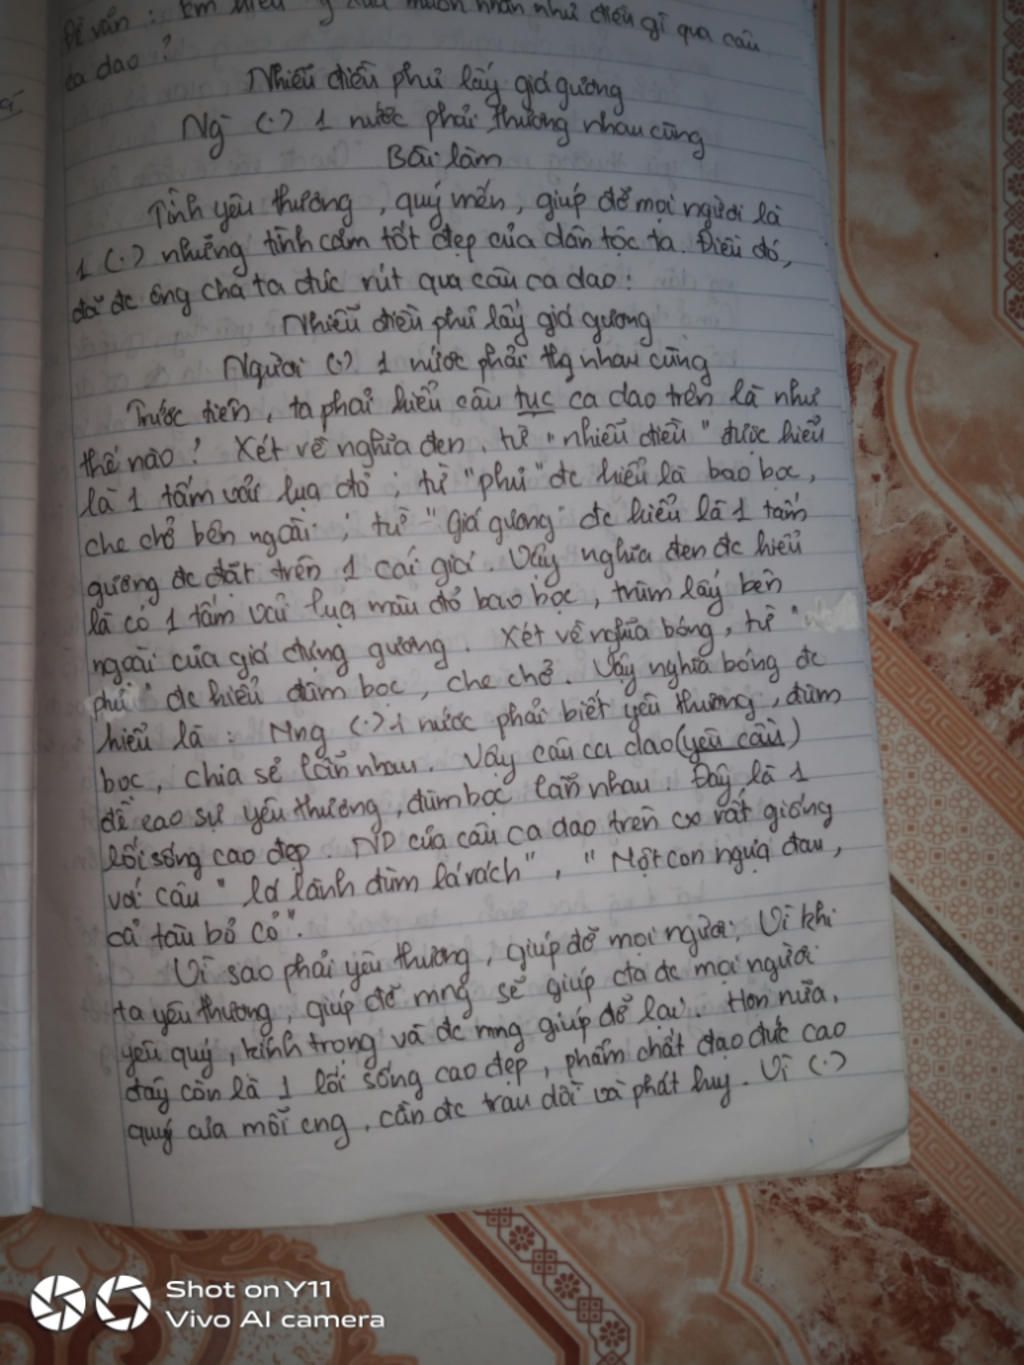 Đề văn : Em hiểu người xưa muốn nhắn nhủ điều gì qua câu
ca dao ?
Nhiễu điều phủ lấy giá gương
Ng (.) 1 nước phải thương nhau cùng
Bài làm
Tình yêu thương , quý mến , giúp đỡ mọi người là
1 (.) những tình cảm tốt đẹp của dân tộc ta. Điều đó,
đã đc ông cha ta đúc rút qua câu ca dao :
Nhiễu điều phủ lấy giá gương
Người (.) 1 nước phải thg nhau cùng
Trước tiên , ta phải hiểu câu tục ca dao trên là như
thế nào ? Xét về nghĩa đen , từ " nhiễu điều " được hiểu
là 1 tấm vải lụa đỏ ; từ " phủ " đc hiểu là bao bọc ,
che chở bên ngoài ; từ " Giá gương " đc hiểu là 1 tấm
gương đc đặt trên 1 cái giá . Vậy nghĩa đen đc hiểu
là có 1 tấm vải lụa màu đỏ bao bọc , trùm lấy bên
ngoài của giá đựng gương . Xét về nghĩa bóng , từ "
phủ " đc hiểu đùm bọc , che chở . Vậy nghĩa bóng đc
hiểu là : Mng (.) 1 nước phải biết yêu thương , đùm
bọc , chia sẻ lẫn nhau . Vậy câu ca dao (yêu cầu)
đề cao sự yêu thương , đùm bọc lẫn nhau . Đây là 1
lối sống cao đẹp . ND của câu ca dao trên cx rất giống
với câu " lá lành đùm lá rách " , " Một con ngựa đau ,
cả tàu bỏ cỏ " .
Vì sao phải yêu thương , giúp đỡ mọi người . Vì khi
ta yêu thương , giúp đỡ mng sẽ giúp cta đc mọi người
yêu quý , kính trọng và đc mng giúp đỡ lại . Hơn nữa ,
đây còn là 1 lối sống cao đẹp , phẩm chất đạo đức cao
quý của mỗi cng , cần đc trau dồi và phát huy . Vì (.)
Shot on Y11
Vivo AI camera